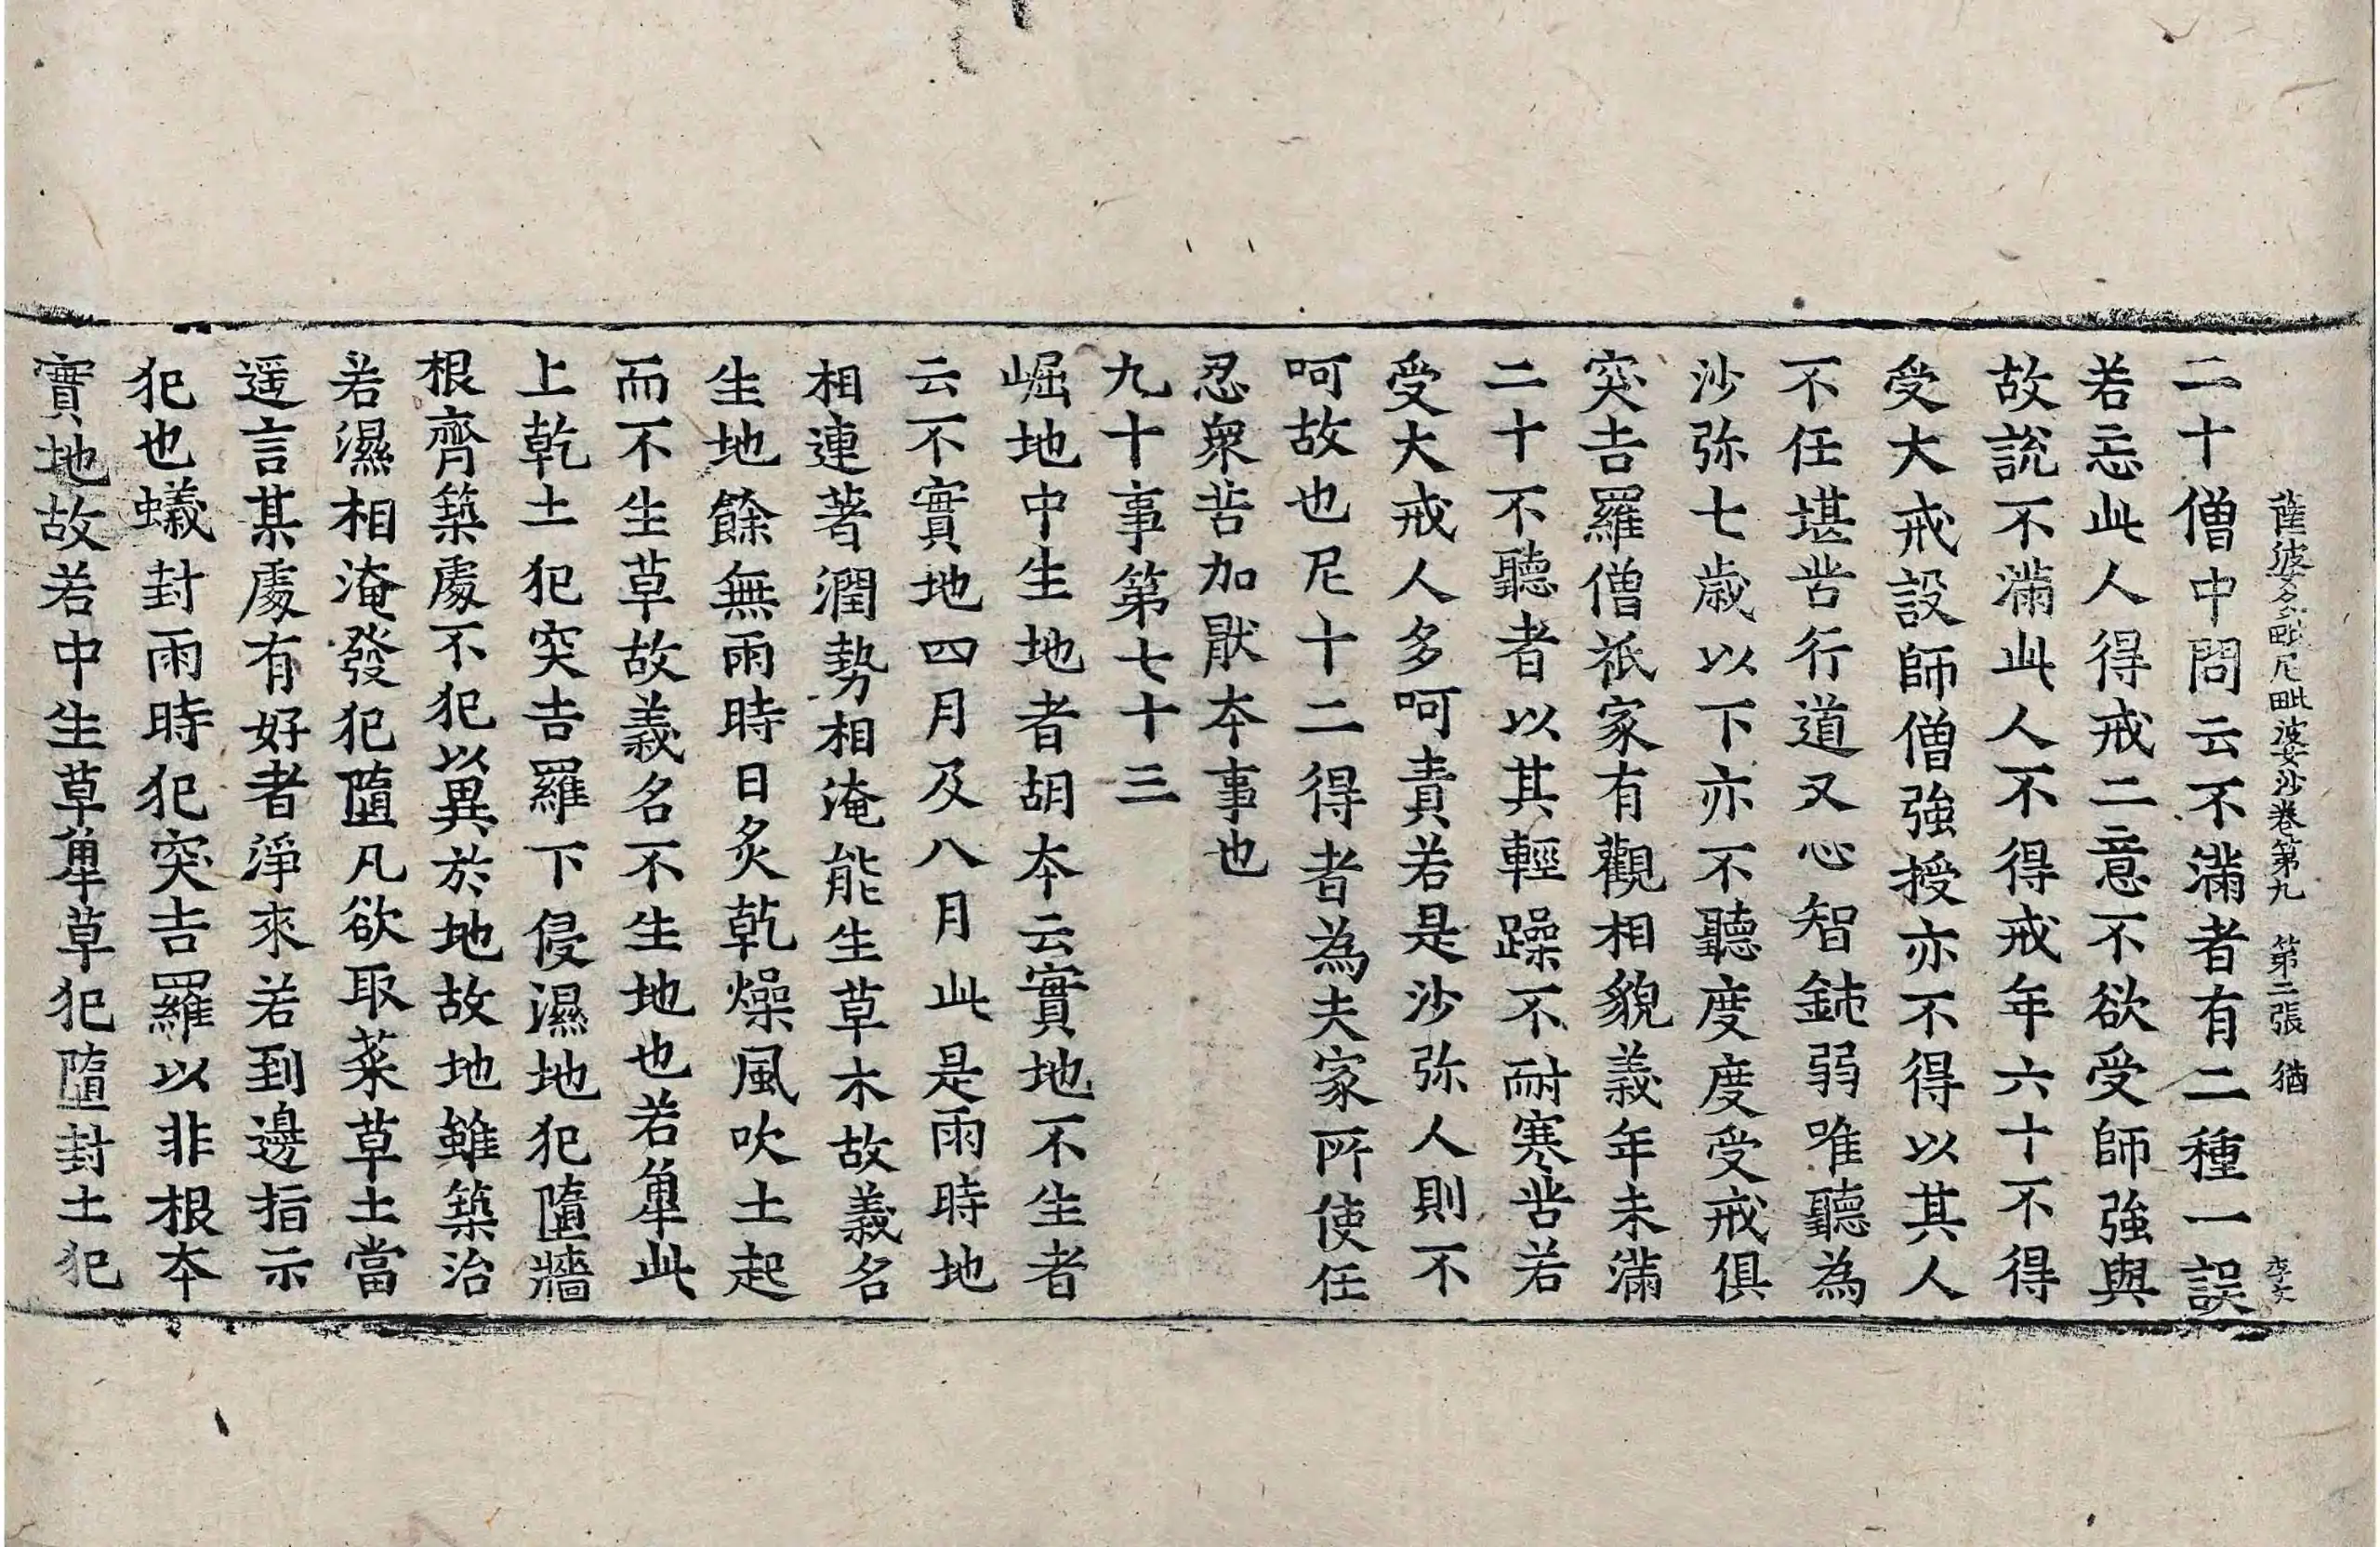 薩婆多毗尼毗婆沙卷第九 第二張 猶 李文
二十僧中問云不滿者有二種一誤
若忘此人得戒二意不欲受師強與
故說不滿此人不得戒年六十不得
受大戒設師僧強授亦不得以其人
不任堪苦行道又心智鈍弱唯聽為
沙弥七歲以下亦不聽度度受戒俱
突吉羅僧祇家有觀相貌義年未滿
二十不聽者以其輕躁不耐寒苦若
受大戒人多呵責若是沙弥人則不
呵故也尼十二得者為夫家所使任
忍衆苦加猒本事也
九十事第七十三
崛地中生地者胡本云實地不生者
云不實地四月及八月此是雨時地
相連著潤勢相淹能生草木故義名
生地餘無雨時日炙乾燥風吹土起
而不生草故義名不生地也若㽎此
上乾土犯突吉羅下侵濕地犯墮牆
根齊築處不犯以異於地故地雖築治
若濕相淹發犯墮凡欲取菜草土當
遥言某處有好者淨來若到邊指示
犯也蟻封雨時犯突吉羅以非根本
實地故若中生草㽎草犯墮封土犯